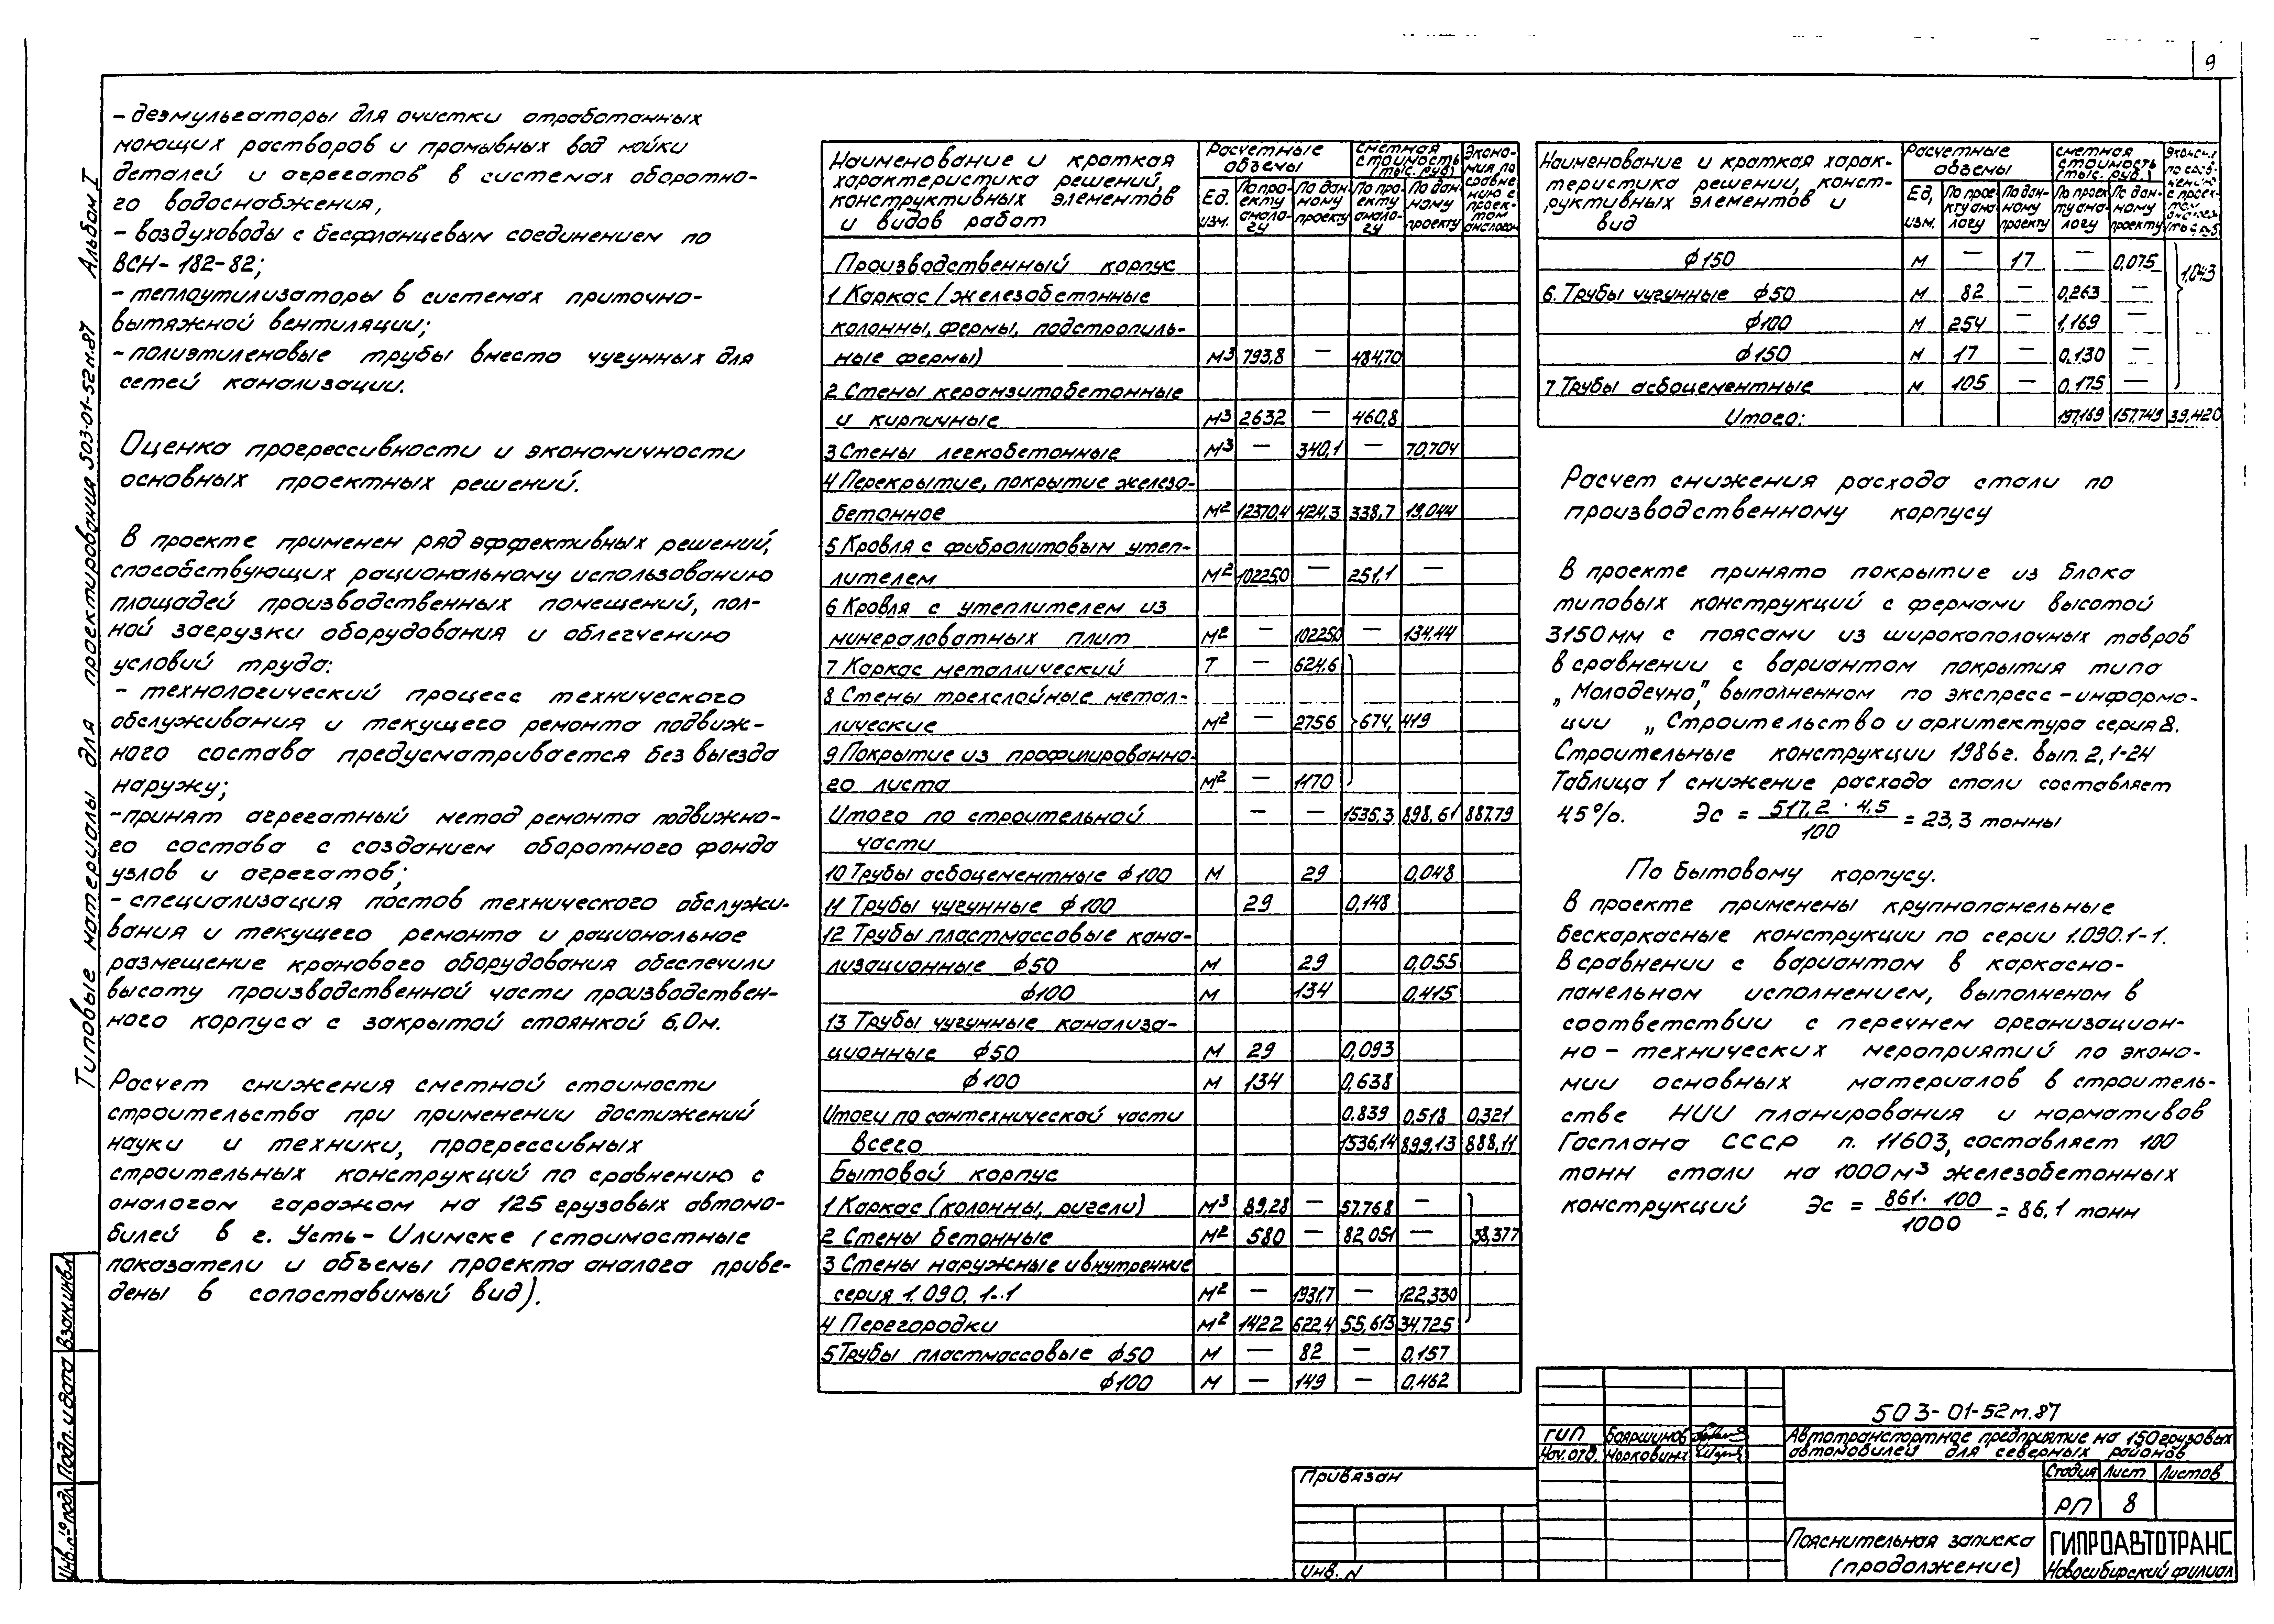 9
- деэмульгаторы для очистки отработанных
моющих растворов и промывных вод мойки
деталей и агрегатов в системах оборотно-
го водоснабжения,
- воздуховоды с бесфланцевым соединением по
ВСН-182-82;
- теплоутилизаторы в системах приточно-
вытяжной вентиляции;
- полиэтиленовые трубы вместо чугунных для
сетей канализации.
Оценка прогрессивности и экономичности
основных проектных решений.
В проекте применен ряд эффективных решений,
способствующих рациональному использованию
площадей производственных помещений, пол-
ной загрузки оборудования и облегчению
условий труда:
- технологический процесс технического
обслуживания и текущего ремонта подвиж-
ного состава предусматривается без выезда
наружу;
- принят агрегатный метод ремонта подвижно-
го состава с созданием оборотного фонда
узлов и агрегатов;
- специализация постов технического обслужи-
вания и текущего ремонта и рациональное
размещение кранового оборудования обеспечили
высоту производственной части производствен-
ного корпуса с закрытой стоянкой 6,0м.
Расчет снижения сметной стоимости
строительства при применении достижений
науки и техники, прогрессивных
строительных конструкций по сравнению с
аналогом гаражом на 125 грузовых автомо-
билей в г. Усть-Илимске (стоимостные
показатели и объемы проекта аналога приве-
дены в сопоставимый вид).
Типовые материалы для проектирования 503-01-52м.87 Альбом I
Инв.№ подл. Подп. и дата Взам.инв.№
Наименование и краткая характеристика решений, конструктивных элементов и видов работ
Расчетные объемы
Сметная стоимость (тыс. руб)
Эконо-мия по сравне-нию с проек-том аналогом
Ед. изм.
По про-екту анало-гу
По дан-ному проекту
По про-екту анало-гу
По дан-ному проекту
Производственный корпус
1 Каркас /железобетонные
колонны, фермы, подстропиль-
ные фермы) м3 793,8 — 484,70
2 Стены керамзитобетонные
и кирпичные м3 2632 — 460,8
3 Стены легкобетонные м3 — 340,1 — 70,704
4 Перекрытие, покрытие железо-
бетонное м2 12370,4 424,3 338,7 19,044
5 Кровля с фибролитовым утеп-
лителем м2 10225,0 — 251,1 —
6 Кровля с утеплителем из
минераловатных плит м2 — 10225,0 — 134,44
7 Каркас металлический т — 624,6
8 Стены трехслойные метал-
лические м2 — 2756 674,419
9 Покрытие из профилированно-
го листа м2 — 1170
Итого по строительной — — 1535,3 898,61 887,79
части
10 Трубы асбоцементные ф100 м 29 0,048
11 Трубы чугунные ф100 29 0,148
12 Трубы пластмассовые кана-
лизационные ф50 м 29 0,055
ф100 м 134 0,415
13 Трубы чугунные канализа-
ционные ф50 м 29 0,093
ф100 м 134 0,638
Итого по сантехнической части 0.839 0,518 0,321
Всего 1536,14 899,13 888,11
Бытовой корпус
1 Каркас (колонны, ригели) м3 89,28 — 57,768 —
2 Стены бетонные м2 580 — 82,051 — 38,377
3 Стены наружные и внутренние
серия 1.090.1-1 м2 — 1931,7 — 122,330
4 Перегородки м2 1422 622,4 55,613 34,725
5 Трубы пластмассовые ф50 м — 82 — 0,157
ф100 м — 149 — 0,462
Наименование и краткая харак-теристика решений, конст-руктивных элементов и вид
Расчетные объемы
Сметная стоимость (тыс. руб.)
Ед. изм.
По прое-кту ана-логу
По дан-ному проекту
По проек-ту ана-логу
По дан-ному проекту
ф150 м — 17 — 0,075 1,043
6. Трубы чугунные ф50 м 82 — 0,263 —
ф100 м 254 — 1,169 —
ф150 м 17 — 0,130 —
7 Трубы асбоцементные м 105 — 0,175 —
Итого: 197,169 157,749 39,420
Расчет снижения расхода стали по
производственному корпусу
В проекте принято покрытие из блока
типовых конструкций с фермами высотой
3150мм с поясами из широкополочных тавров
в сравнении с вариантом покрытия типа
„Молодечно”, выполненном по экспресс-информа-
ции „Строительство и архитектура серия 8.
Строительные конструкции 1986г. вып.2,1-24
Таблица 1 снижение расхода стали составляет
4,5%. Эс = 517,2 · 4.5 / 100 = 23,3 тонны
По бытовому корпусу.
В проекте применены крупнопанельные
бескаркасные конструкции по серии 1.090.1-1.
В сравнении с вариантом в каркасно-
панельном исполнением, выполненом в
соответствии с перечнем организацион-
но-технических мероприятий по эконо-
мии основных материалов в строитель-
стве НИИ планирования и нормативов
Госплана СССР п. 11603, составляет 100
тонн стали на 1000м3 железобетонных
конструкций Эс = 861 · 100 / 1000 = 86,1 тонн
Привязан
Инв. N
ГИП Бояршинов
Нач.отд.
503-01-52м.87
Автотранспортное предприятие на 150 грузовых
автомобилей для северных районов
Стадия Лист Листов
РП 8
Пояснительная записка
(продолжение)
ГИПРОАВТОТРАНС
Новосибирский филиал